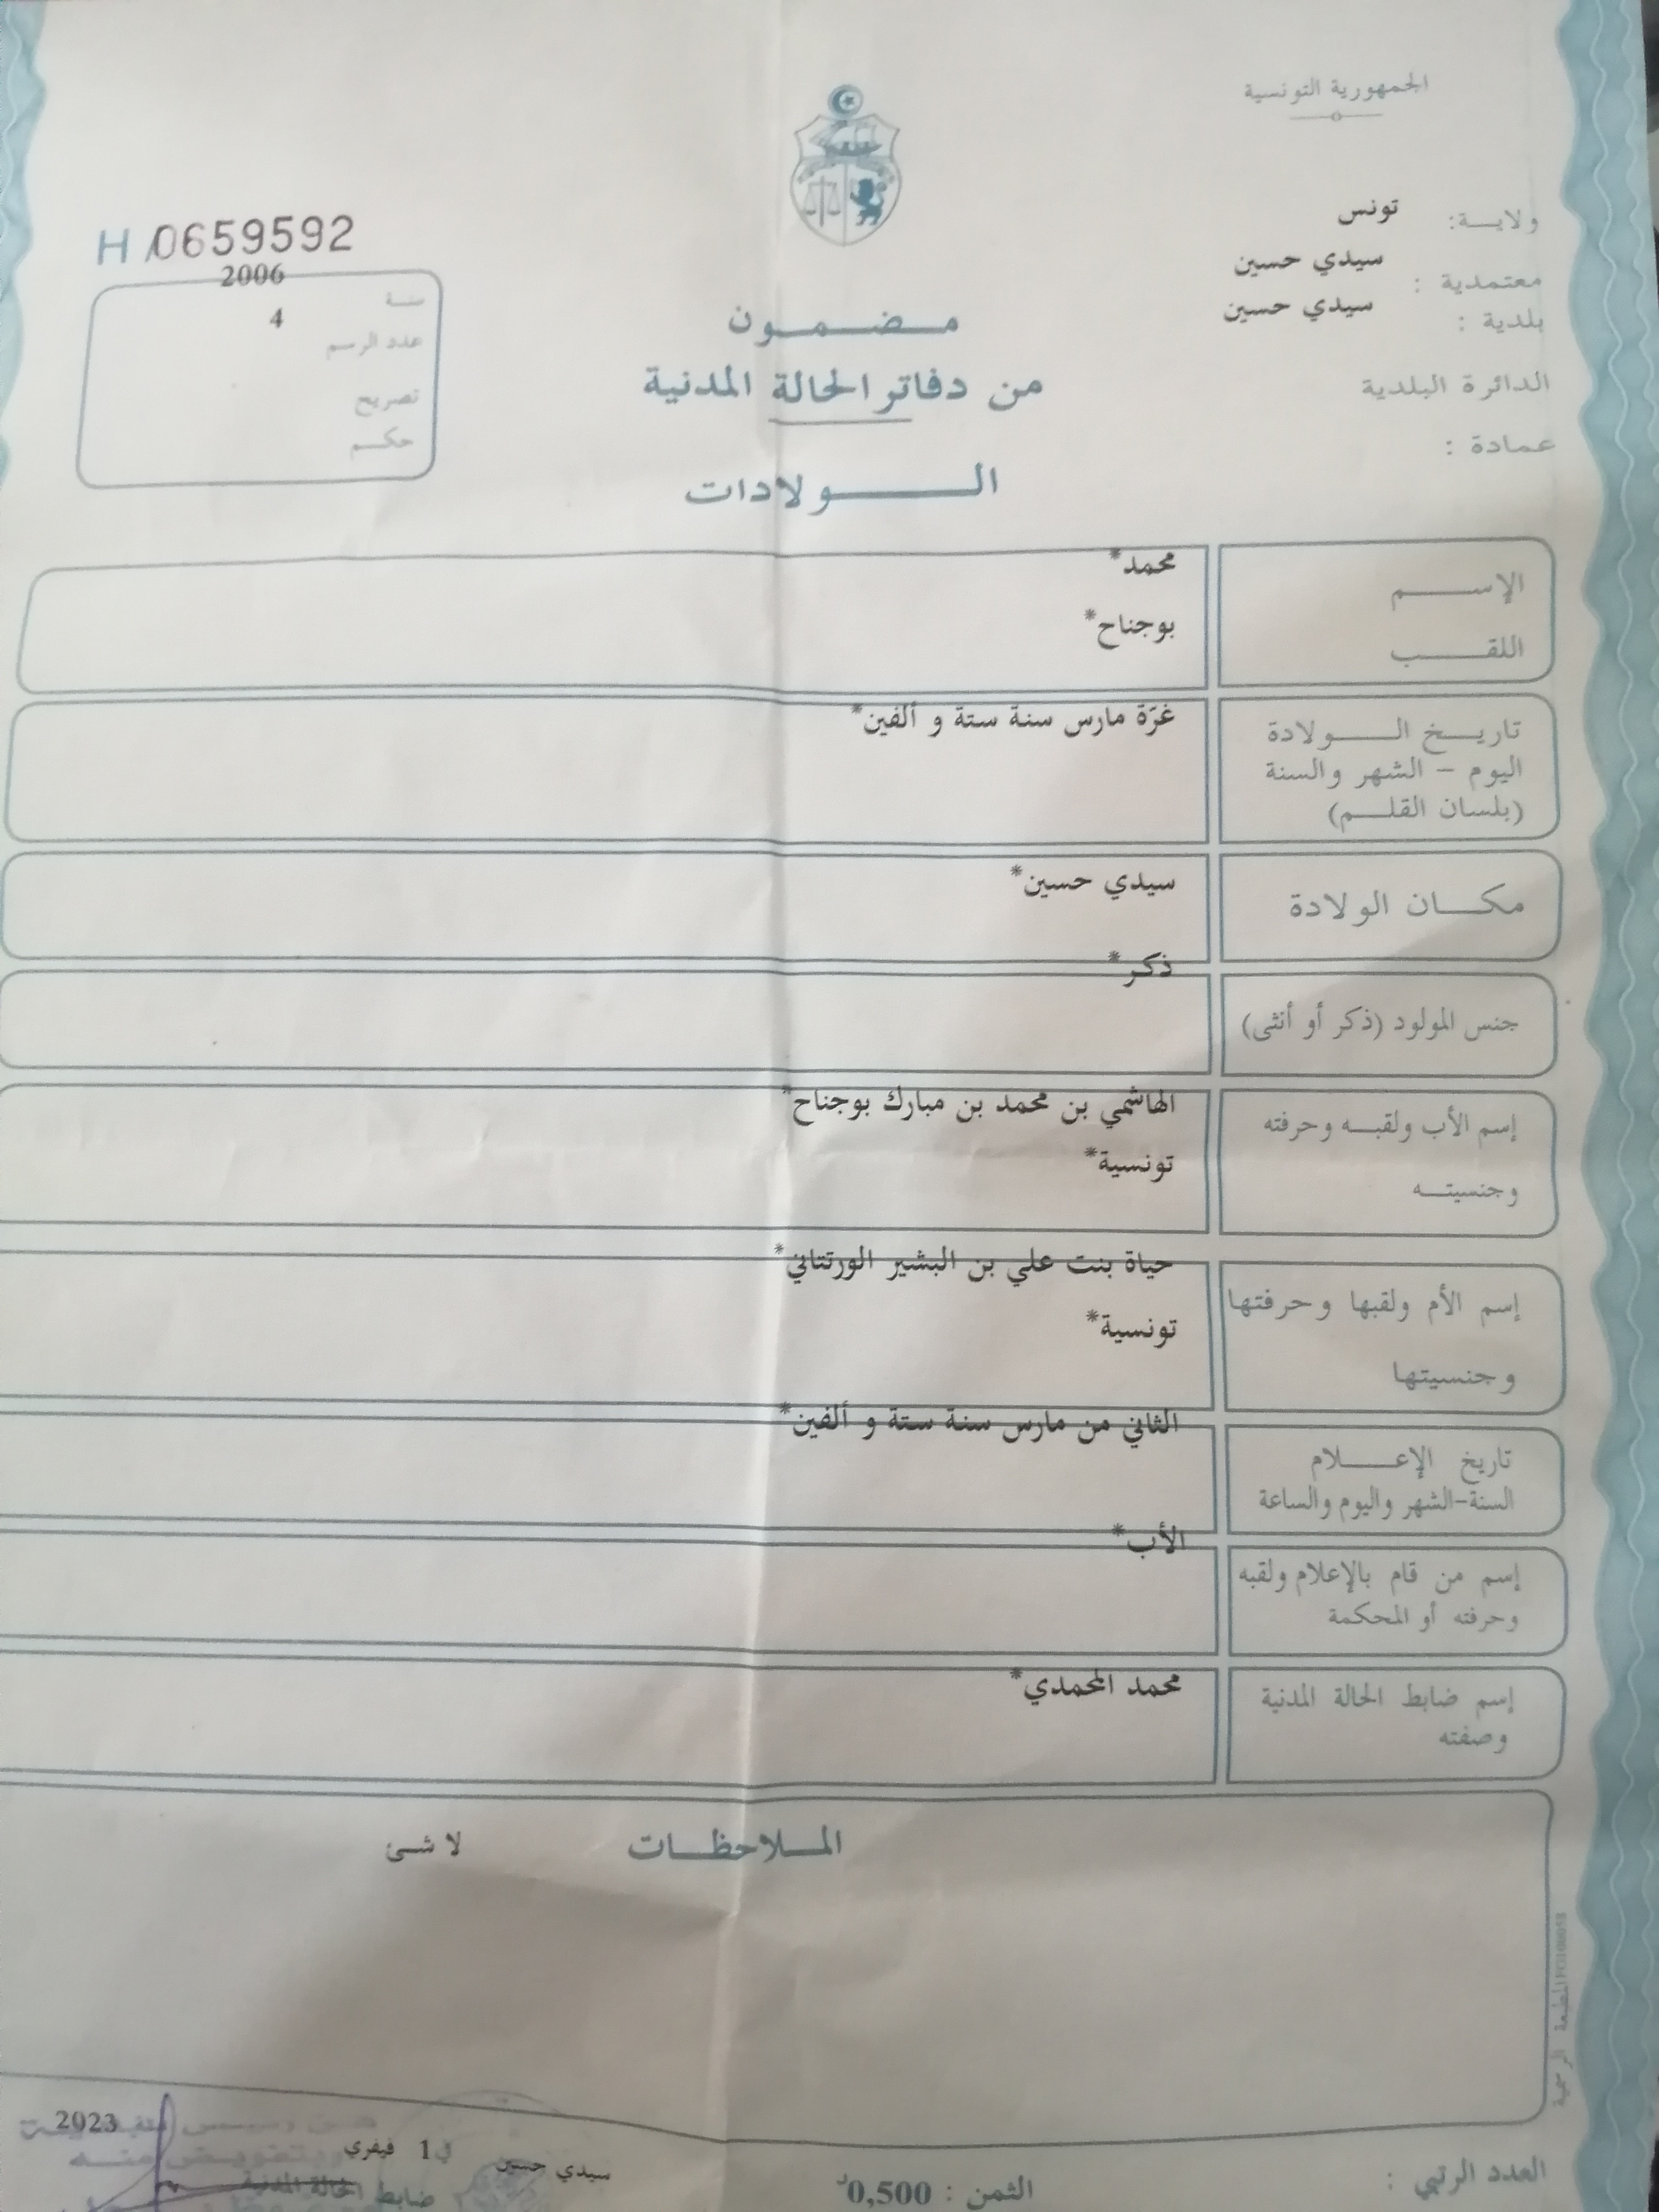 الجمهورية التونسية
ولايـة: تونس
معتمدية : سيدي حسين
بلدية : سيدي حسين
الدائرة البلدية
عمادة :
H 0659592
سنة 2006
عدد الرسم 4
تصريح
حكم
مضمون
من دفاتر الحالة المدنية
الولادات
الإسم محمد*
اللقب بوجناح*
تاريخ الولادة غرّة مارس سنة ستة و ألفين*
اليوم - الشهر والسنة
(بلسان القلم)
مكان الولادة سيدي حسين*
جنس المولود (ذكر أو أنثى) ذكر*
إسم الأب ولقبه وحرفته الهاشمي بن محمد بن مبارك بوجناح*
وجنسيته تونسية*
إسم الأم ولقبها وحرفتها حياة بنت علي بن البشير الورتتاني*
وجنسيتها تونسية*
تاريخ الإعلام الثاني من مارس سنة ستة و ألفين*
السنة-الشهر واليوم والساعة
إسم من قام بالإعلام ولقبه الأب*
وحرفته أو المحكمة
إسم ضابط الحالة المدنية محمد المحمدي*
وصفته
الملاحظات لا شئ
المطبعة الرسمية
سيدي حسين في 1 فيفري 2023
ضابط الحالة المدنية
العدد الرتبي :
الثمن : 0,500د